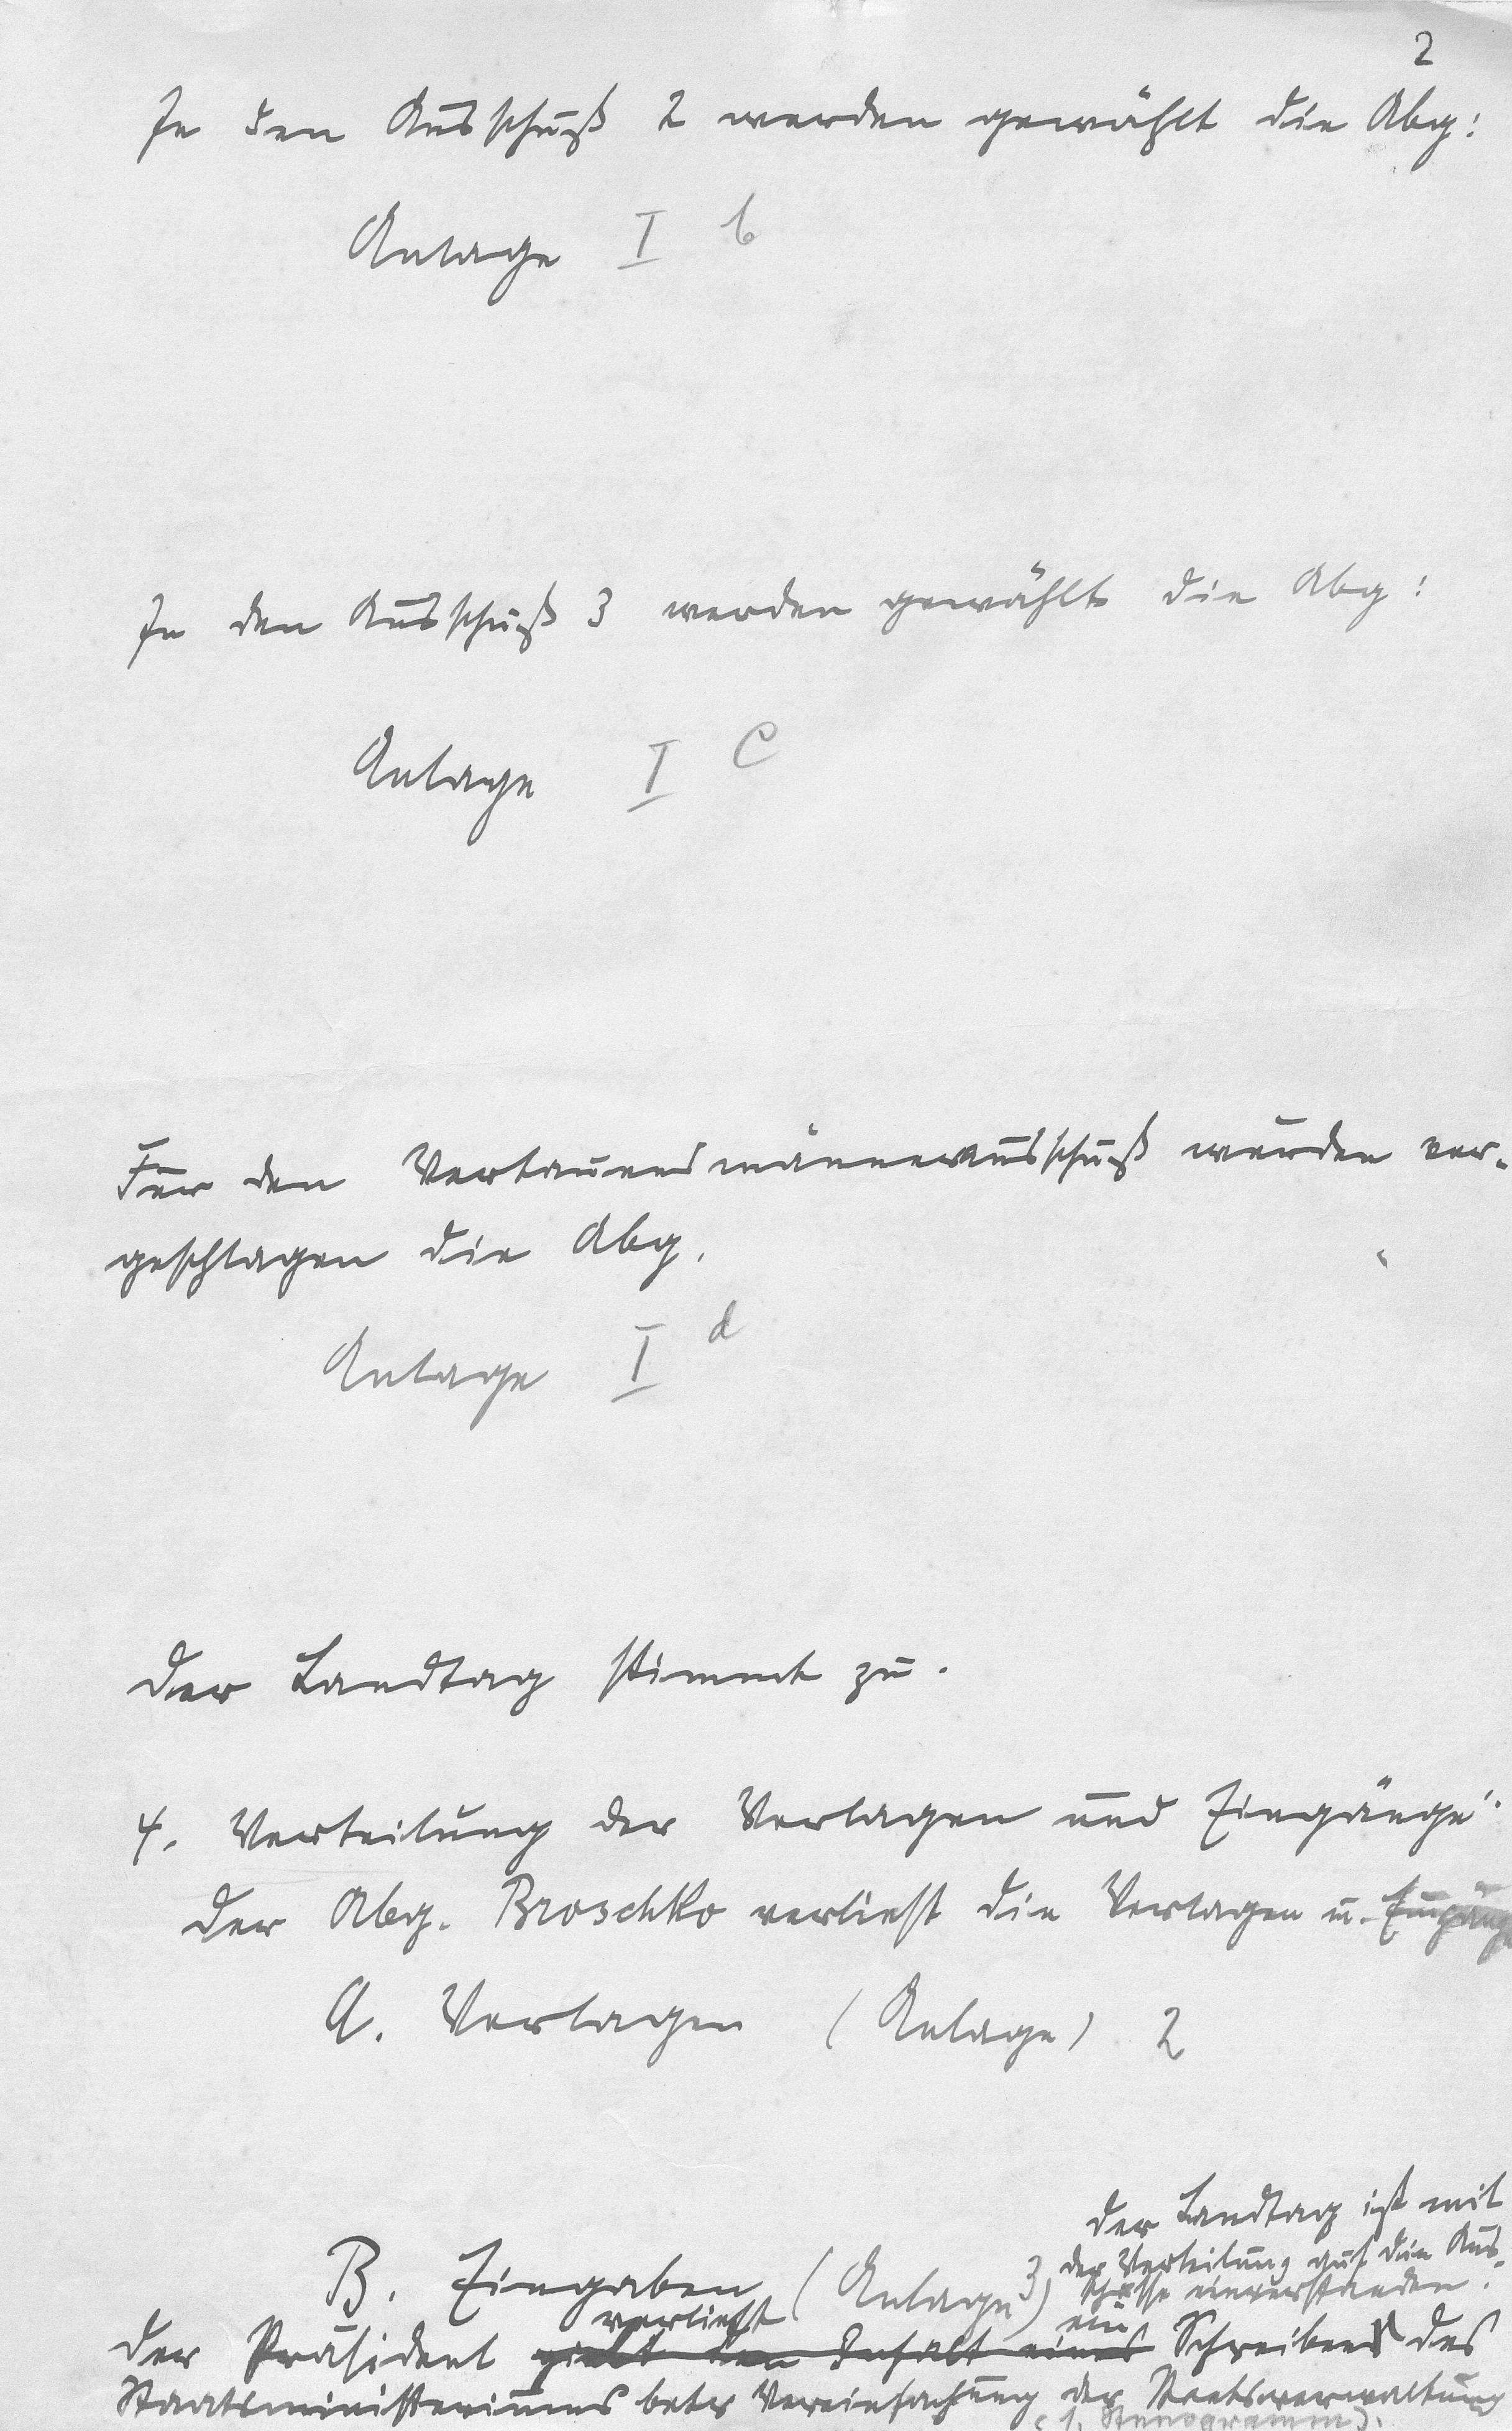 2
In den Ausschuß 2 werden gewählt die Abg:
Anlage I b
In den Ausschuß 3 werden gewählt die Abg:
Anlage I c
Für den Vertauensmännerausschuß wurden vor-
geschlagen die Abg.
Anlage I d
Der Landtag stimmt zu.
4. Verteilung der Vorlagen und Eingänge
Der Abg. Broschko verließt die Vorlagen u. Eingänge
A. Vorlagen (Anlage) 2
Der Landtag ist mit
der Verteilung auf die Aus-
schüsse einverstanden.
B. Eingaben (Anlage 3)
verließt ein
Der Präsident giebt den Inhalt eines Schreibens des
Staatsministeriums betr Vereinfachung der Staatsverwaltung
(s. Stenogramm).